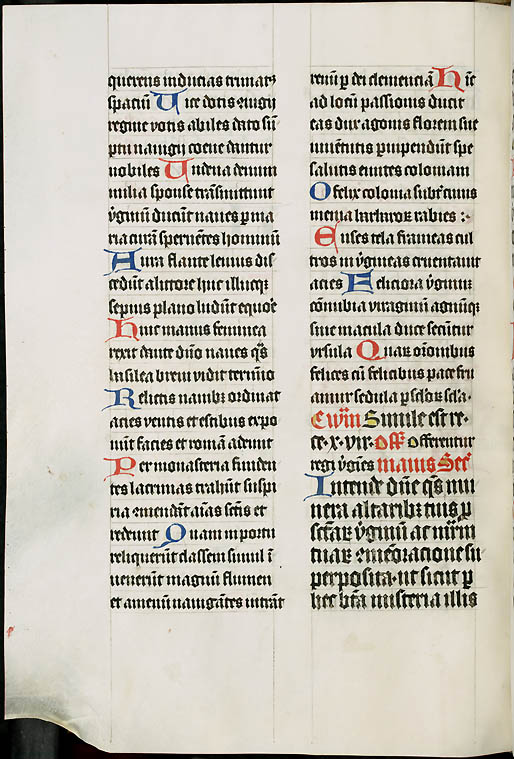 querens inducias trinarꝫ
spaciū Vice dotis nuıgij
regine votis abiles dato sūt
portu nauigij coeue dantur
nobiles Vndena demum
milia sponse trāsmittunt
ỽginū ducūt naues per ma
ria curā spernētes hominū
Aura flante leuius dis
cedūt a littore huc illucqꝫ
sepius plano ludūt equore
Huic manus feminea
rexit dante dn̄o naues qͣs
basilea breui vidit termino
Relictis nauibꝫ ordinat
acies ventis et estibus expo
nūt facies et romā adeunt
Per monasteria funden
tes lacrimas trahūt suspi
ria emendāt aīas sctīs et
redeunt Quam in portu
reliquerūt classem simul ī
uenerūt magnū flumen
et amenū nauigātes intrāt
renū ꝑ dei clemenciā Hīc
ad locū passionis ducit
eas dux agonis florem sue
iuuētutis
salutis ciuites coloniam
O felix colonia
Euses tela frameas cul
tros in ỽgineas cruentauit
acies Feliciora ỽginū
cōnubia viraginū agnūqꝫ
sine macula duce secūtur
vrsula Quaꝝ oīonibus
felices cū felicibus pace fru
amur sedula ꝑ sc̄loꝝ sc̄la.
Ewm̄ Simile est re
ce. x. vir. Off Offerentur
regi ỽgīes maius Sec̄
Intende dn̄e qͣs mu
nera altaribꝫ tuis ꝓ
sctāꝝ ỽginū ac mr̄m
tuaꝝ cōmēoracione su
perposita. ut sicut ꝑ
hec btā misteria illis